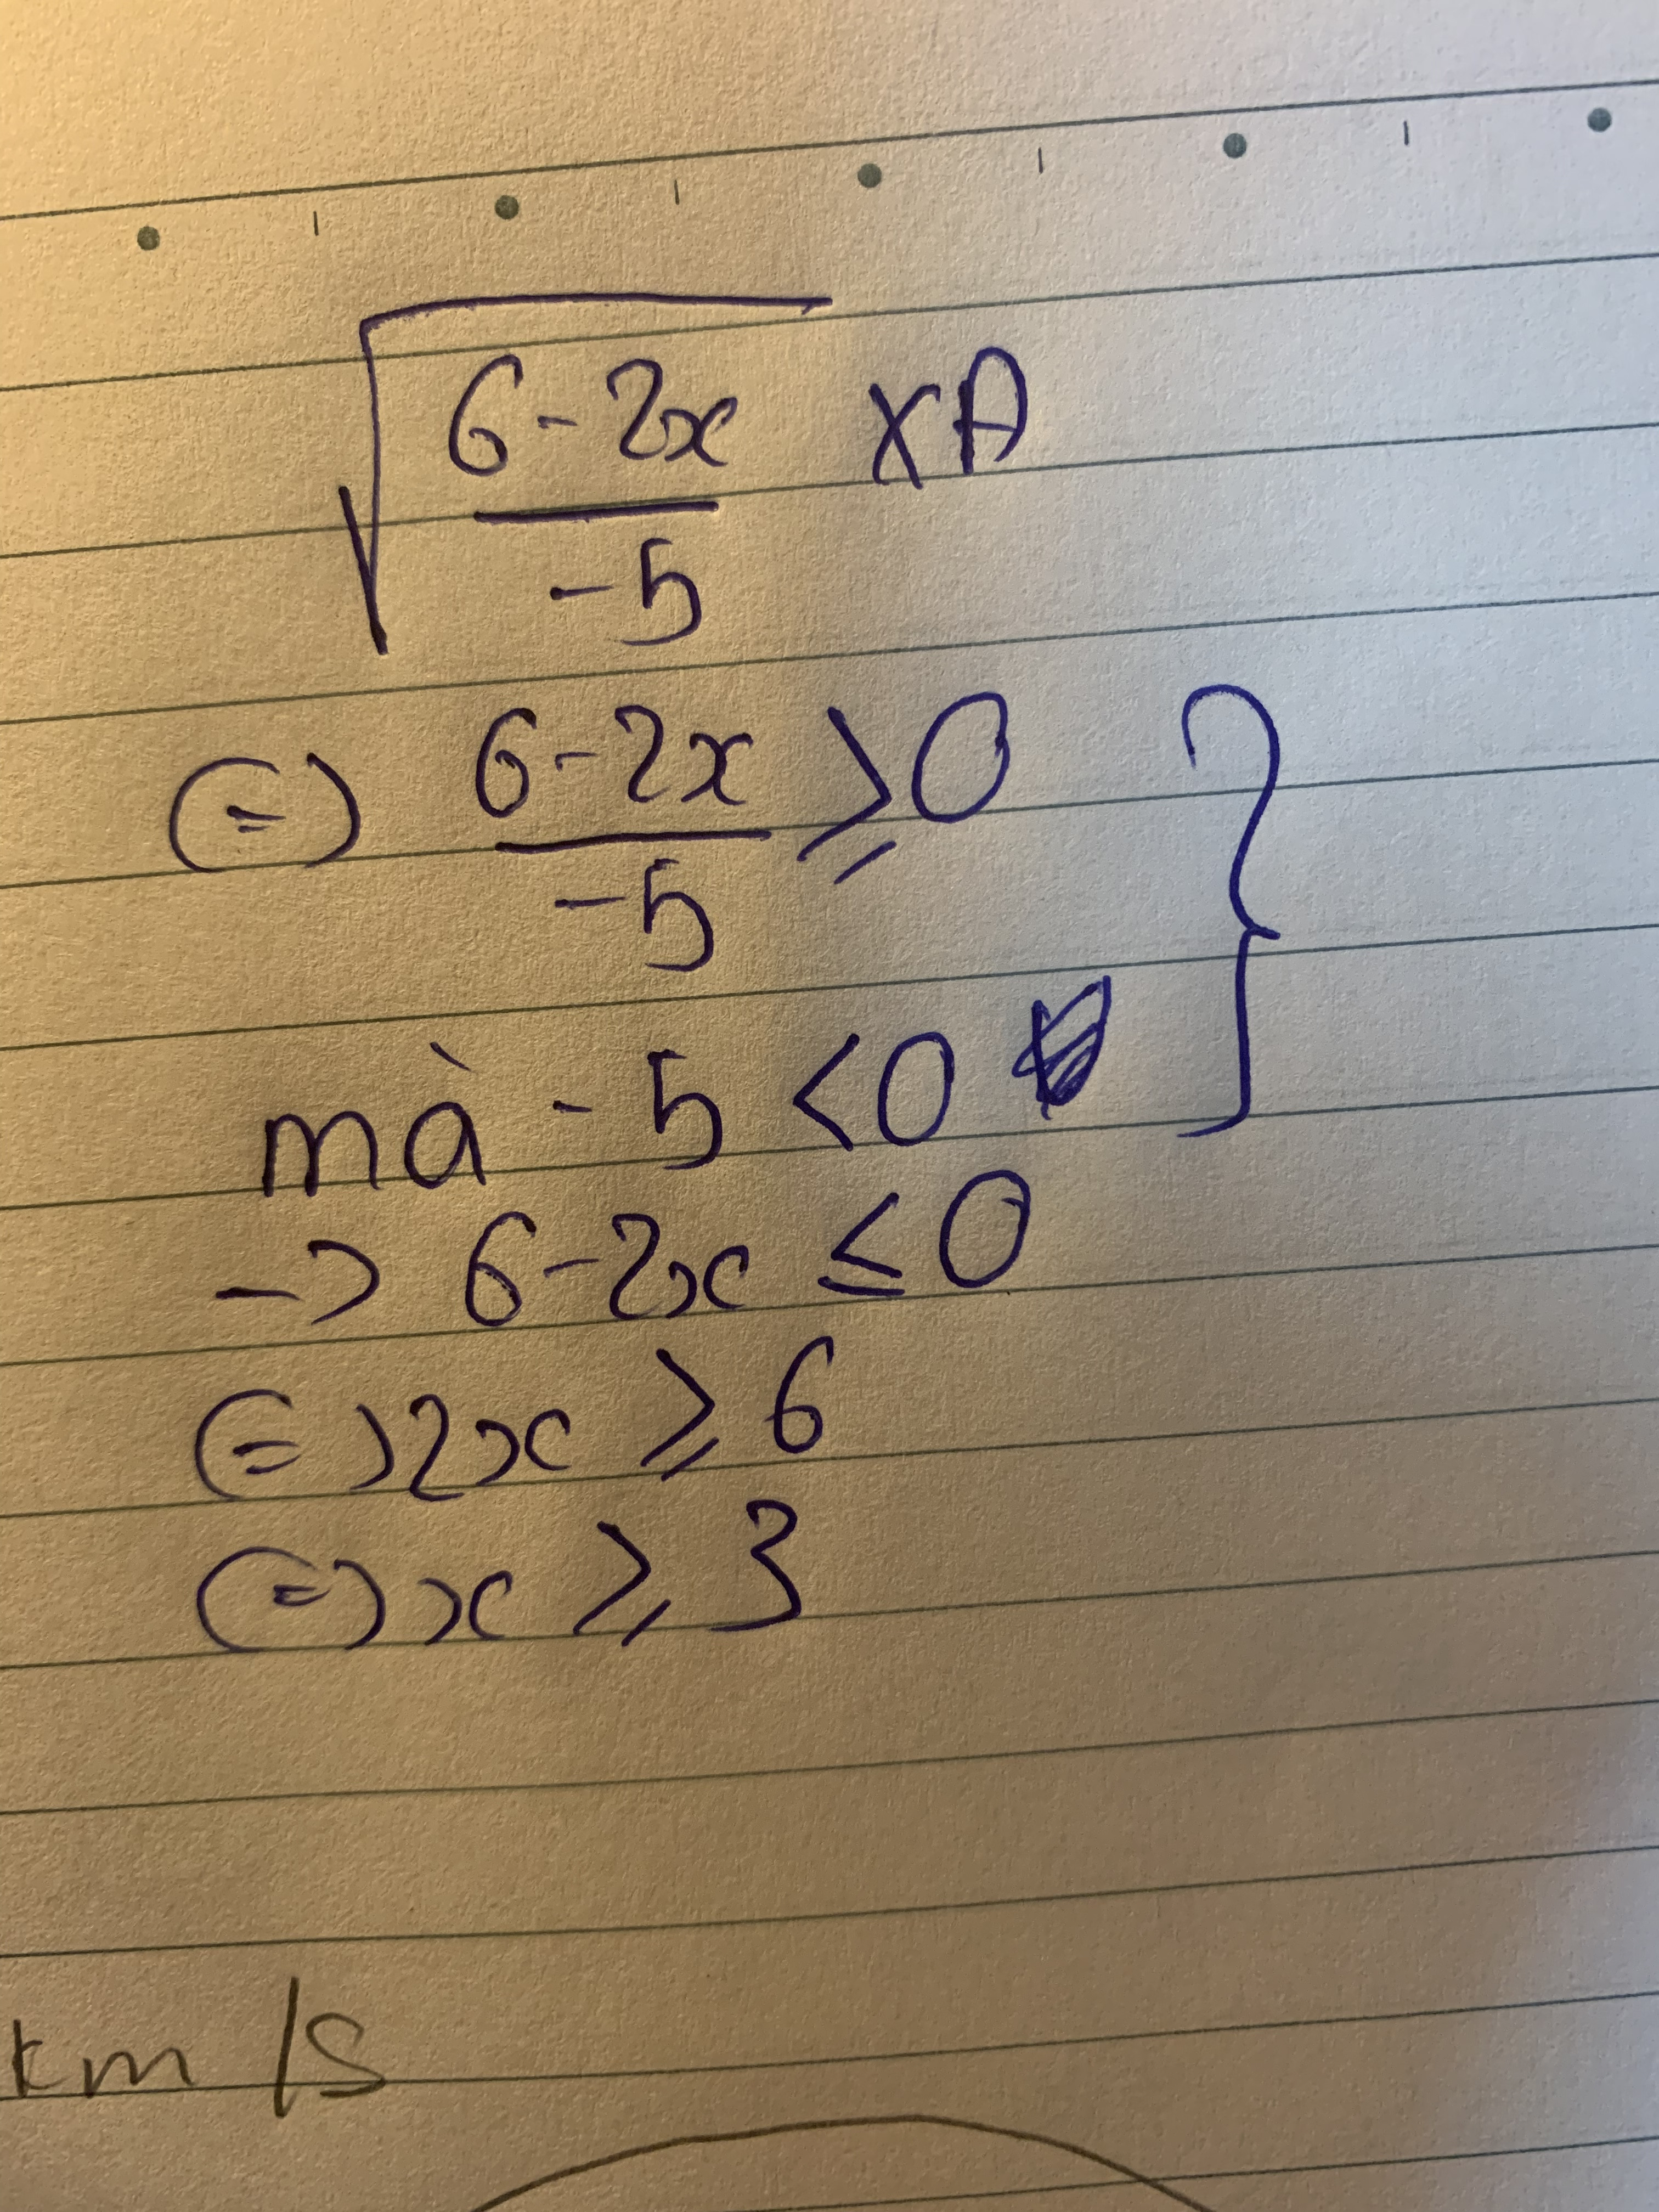 √((6-2x)/(-5)) XĐ
(=) (6-2x)/(-5) ≥ 0 }
mà -5 < 0
-> 6-2x ≤ 0
(=) 2x ≥ 6
(=) x ≥ 3
km/s